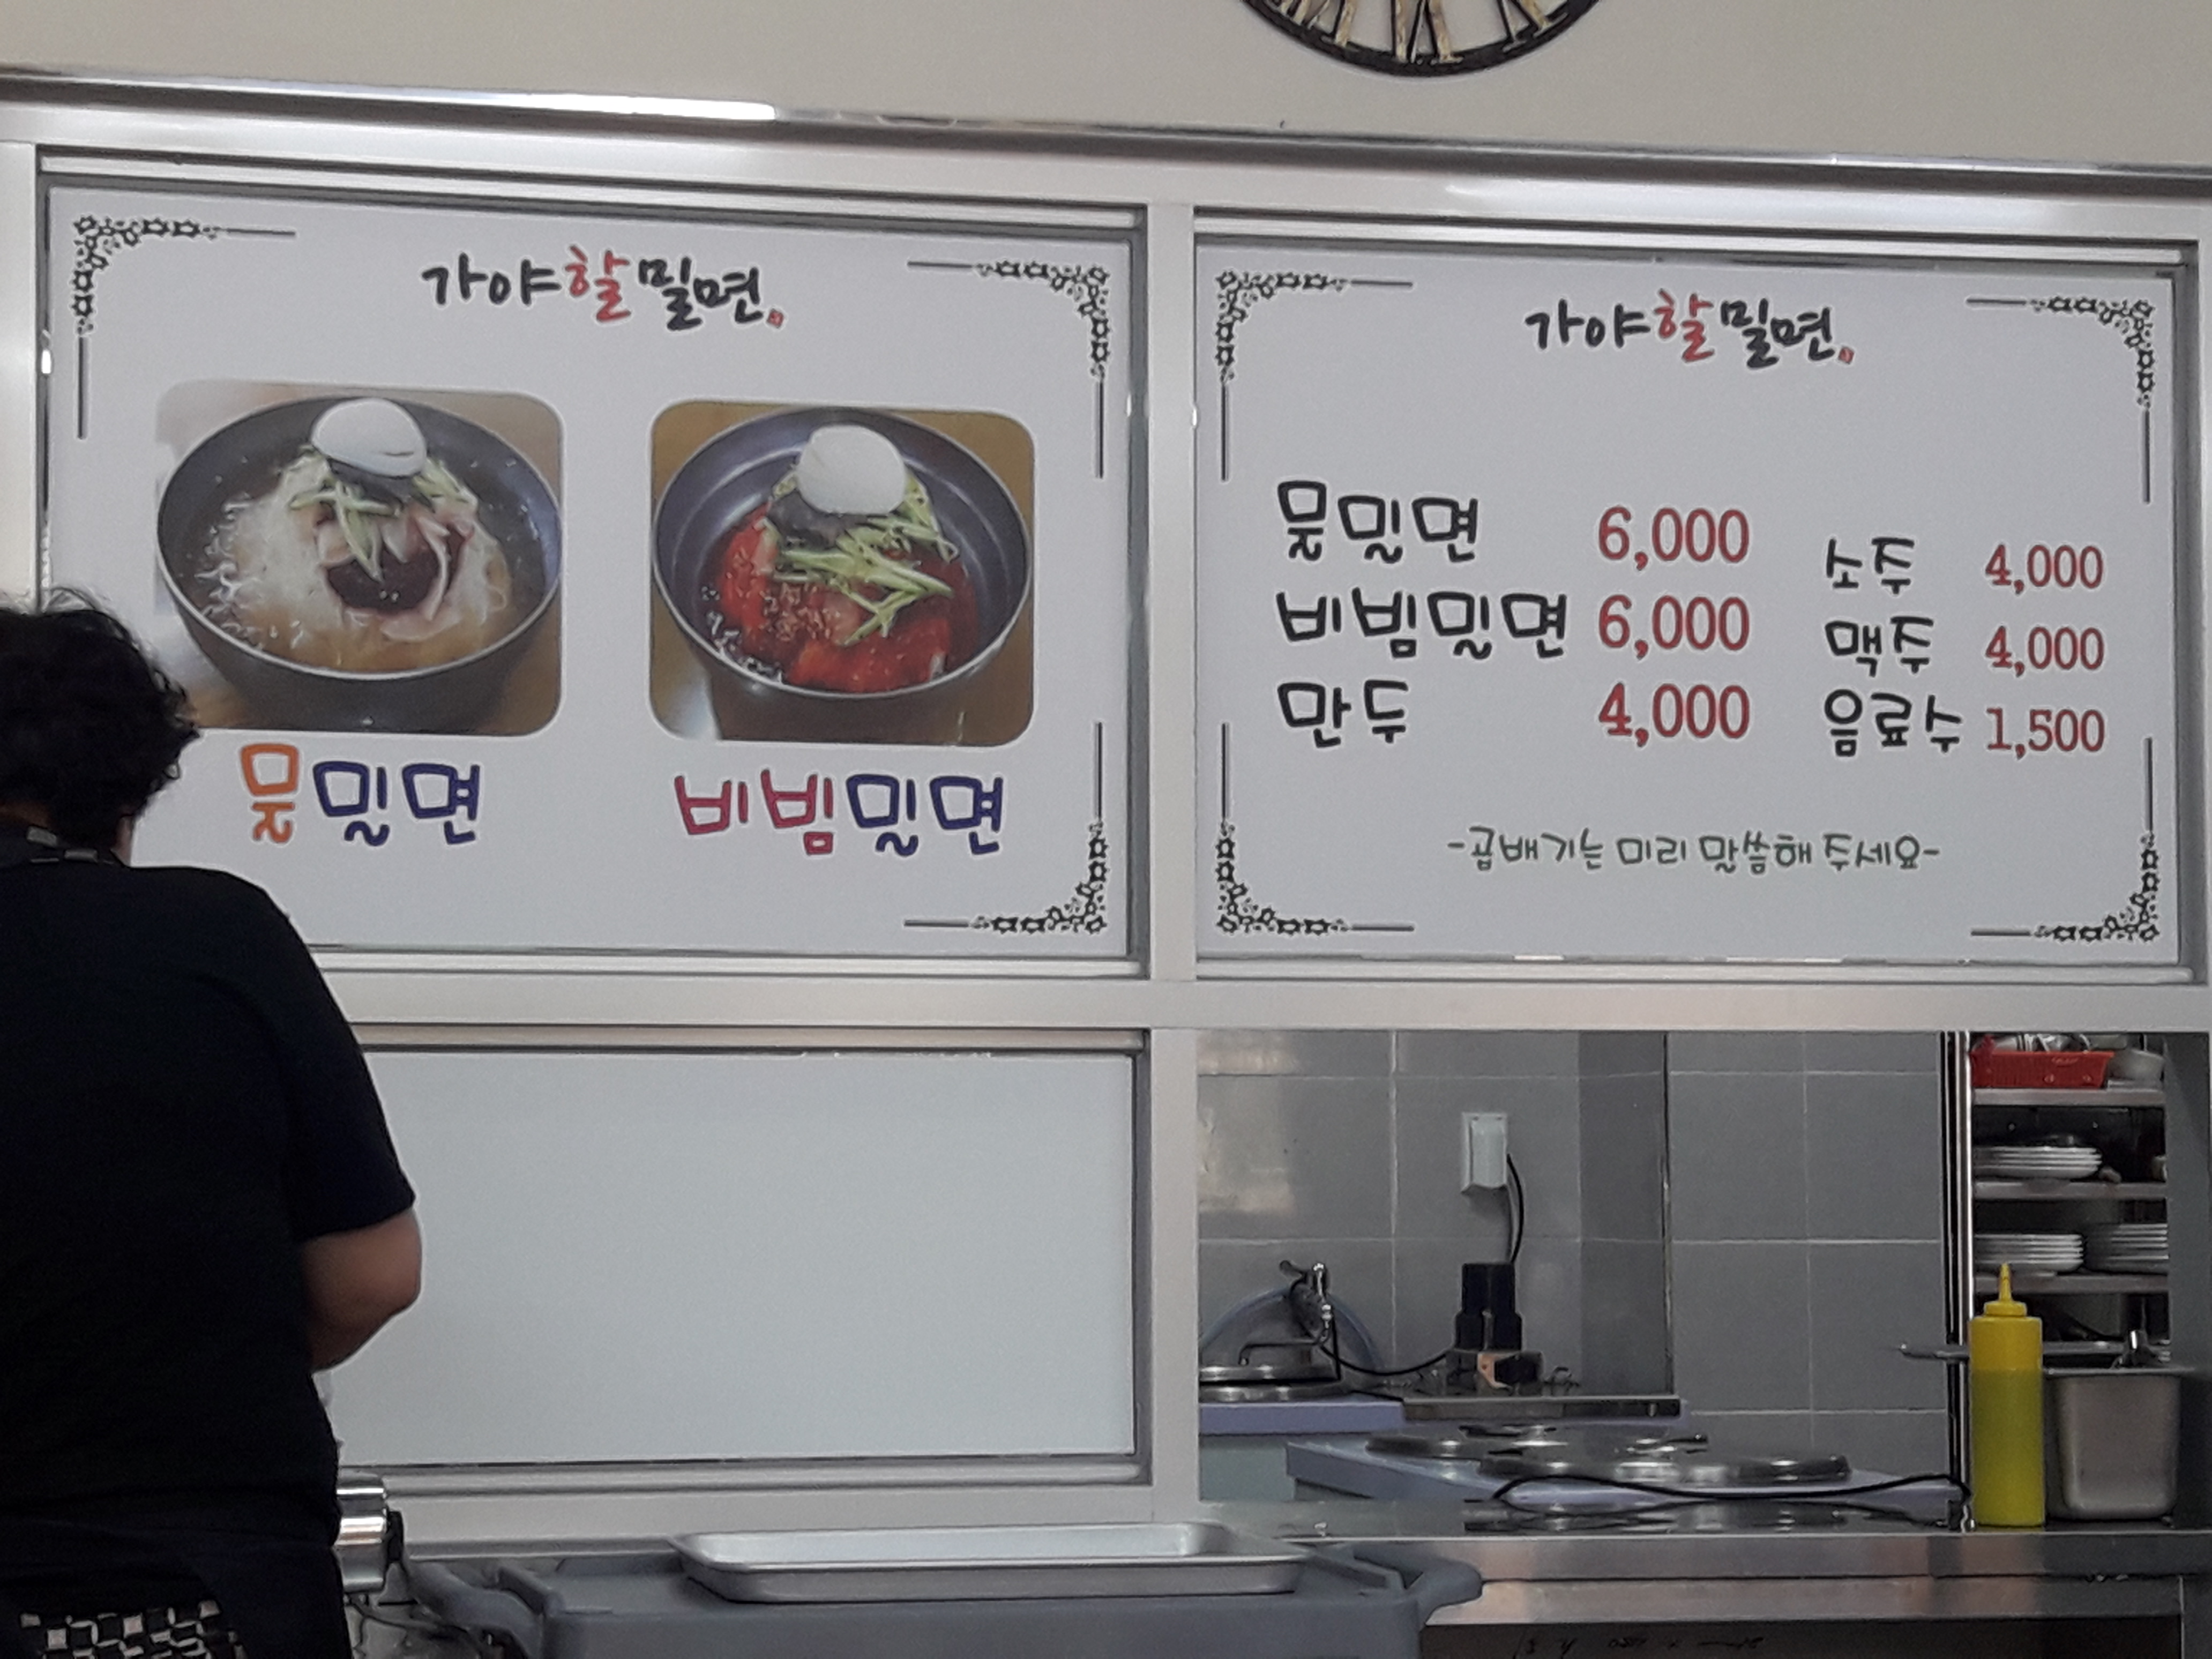 가야할밀면
물밀면
비빔밀면
가야할밀면
물밀면 6,000
비빔밀면 6,000
만두 4,000
소주 4,000
맥주 4,000
음료수 1,500
-곱배기는 미리 말씀해 주세요-